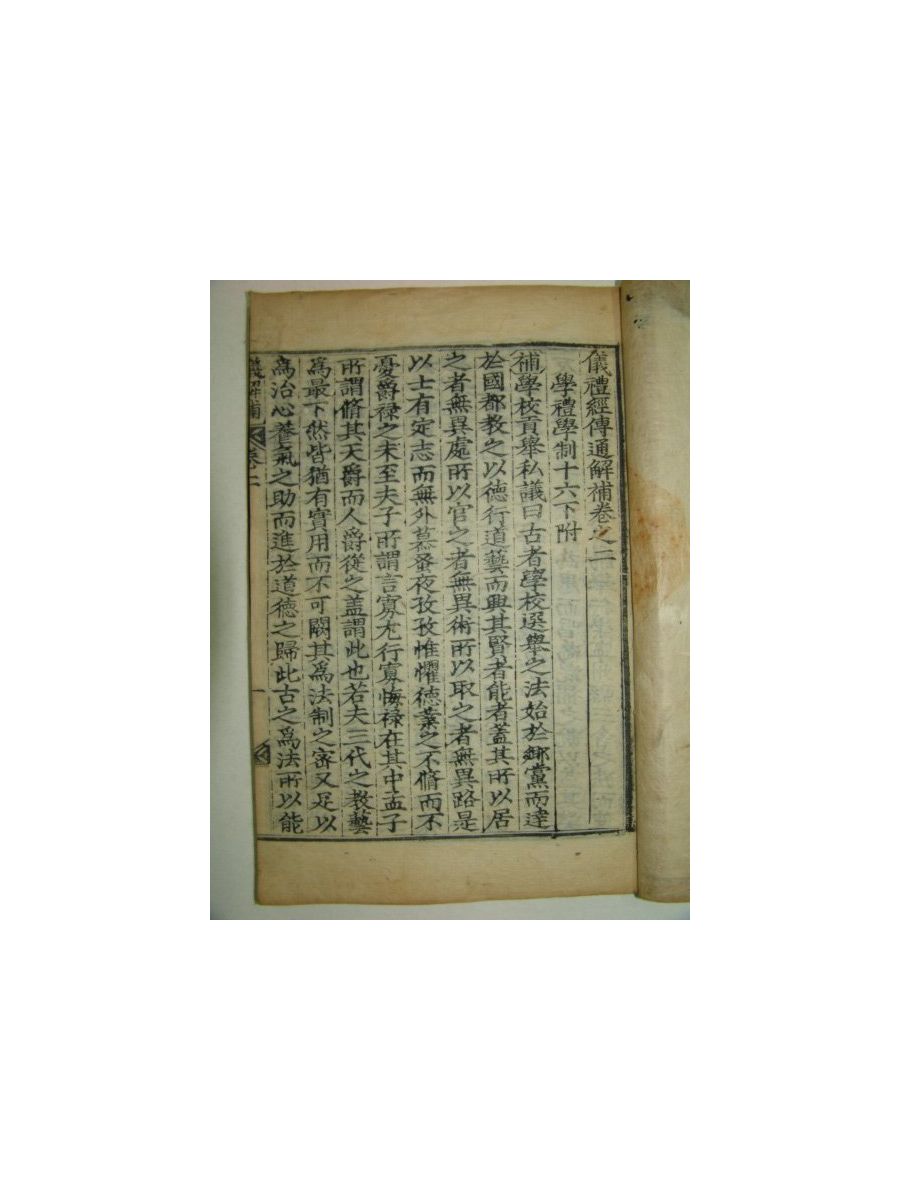 儀禮經傳通解補卷之二
學禮學制十六下附
補學校貢舉私議曰古者學校選舉之法始於鄕黨而達
於國都教之以德行道藝而興其賢者能者蓋其所以居
之者無異處所以官之者無異術所以取之者無異路是
以士有定志而無外慕蚤夜孜孜惟懼德業之不脩而不
憂爵祿之未至夫子所謂言寡尤行寡悔祿在其中孟子
所謂脩其天爵而人爵從之盖謂此也若夫三代之教藝
爲最下然皆猶有實用而不可闕其爲法制之密又足以
爲治心養氣之助而進於道德之歸此古之爲法所以能
儀解補 卷二 一